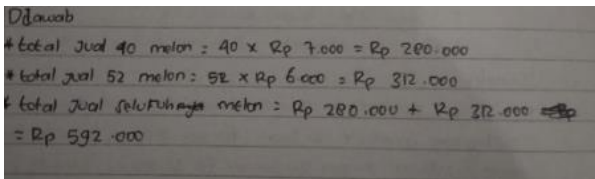 Ddawab
* total Jual 40 melon : 40 x Rp 7.000 = Rp 280.000
* total Jual 52 melon : 52 x Rp 6.000 = Rp 312.000
* total Jual seluruhnya melon : Rp 280.000 + Rp 312.000
= Rp 592.000